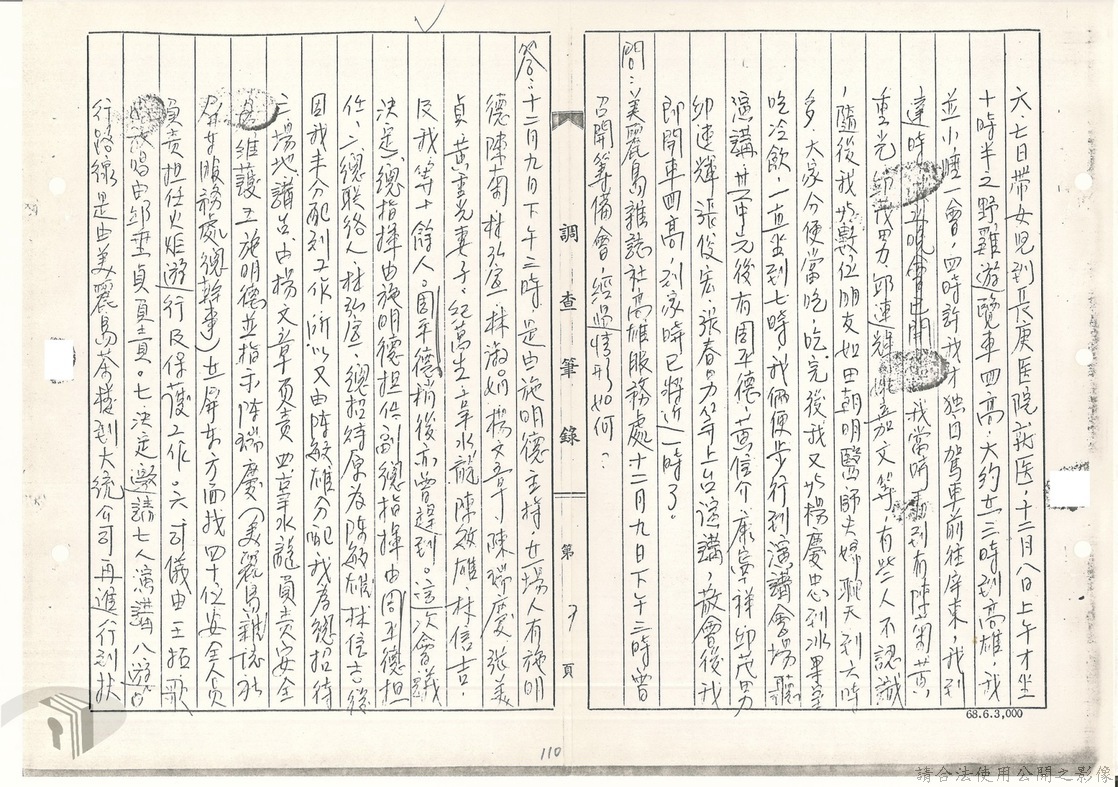 六、七日帶女兒到長庚医院就医，十二月八日上午才坐
十時半之野雞遊覽車回高，大約在三時到高雄，我
並小睡一會，四時許我才獨自駕車前往屏東，我到
達時　晚會已開　我當時看到有陳菊、黃
重光、邱茂男、邱連輝、　嘉文等，有些人不認識
，隨後我與幾位朋友如田朝明醫師夫婦聊天到六時
多，大家分便當吃，吃完後我又與楊慶忠到冰果室
吃冷飲，一直坐到七時，我倆便步行到演講會場聽
演講，　後有周平德、黃信介、康寧祥、邱茂男
邱連輝、張俊宏、張春男等上台演講，散會後我
即開車回高，到家時已將近一時了。
問：美麗島雜誌社高雄服務處十二月九日下午三時曾
召開籌備會，經過情形如何？
調查筆錄 第 頁
答：十二月九日下午三時，是由施明德主持，在場人有施明
德、陳菊、林弘宣、林　、楊文章、陳瑞慶、張美
貞、黃重光妻子、紀萬生、辜水龍、陳敏雄、林信吉、
及我等十餘人。周平德稍後亦曾趕到。這次會議
決定㈠總指揮由施明德担任，副總指揮由周平德担
任，二總联络人林弘宣、總招待原為陳敏雄、林信吉，後
因我未分配到工作，所以又由陳敏雄分配我為總招待
三場地講台由楊文章負責，四辜水龍負責安全
維護，五施明德並指示陳瑞慶（美麗島雜誌社
屏東服務處總幹事）在屏東方面找四十位安全人員
負責担任火炬遊行及保護工作。六司儀由王拓，歌
唱由邱垂貞負責。七決定邀請七人演講，八遊
行路線是由美麗島茶樓到大統公司再進行到扶
68.6.3,000
110
請合法使用公開之影像